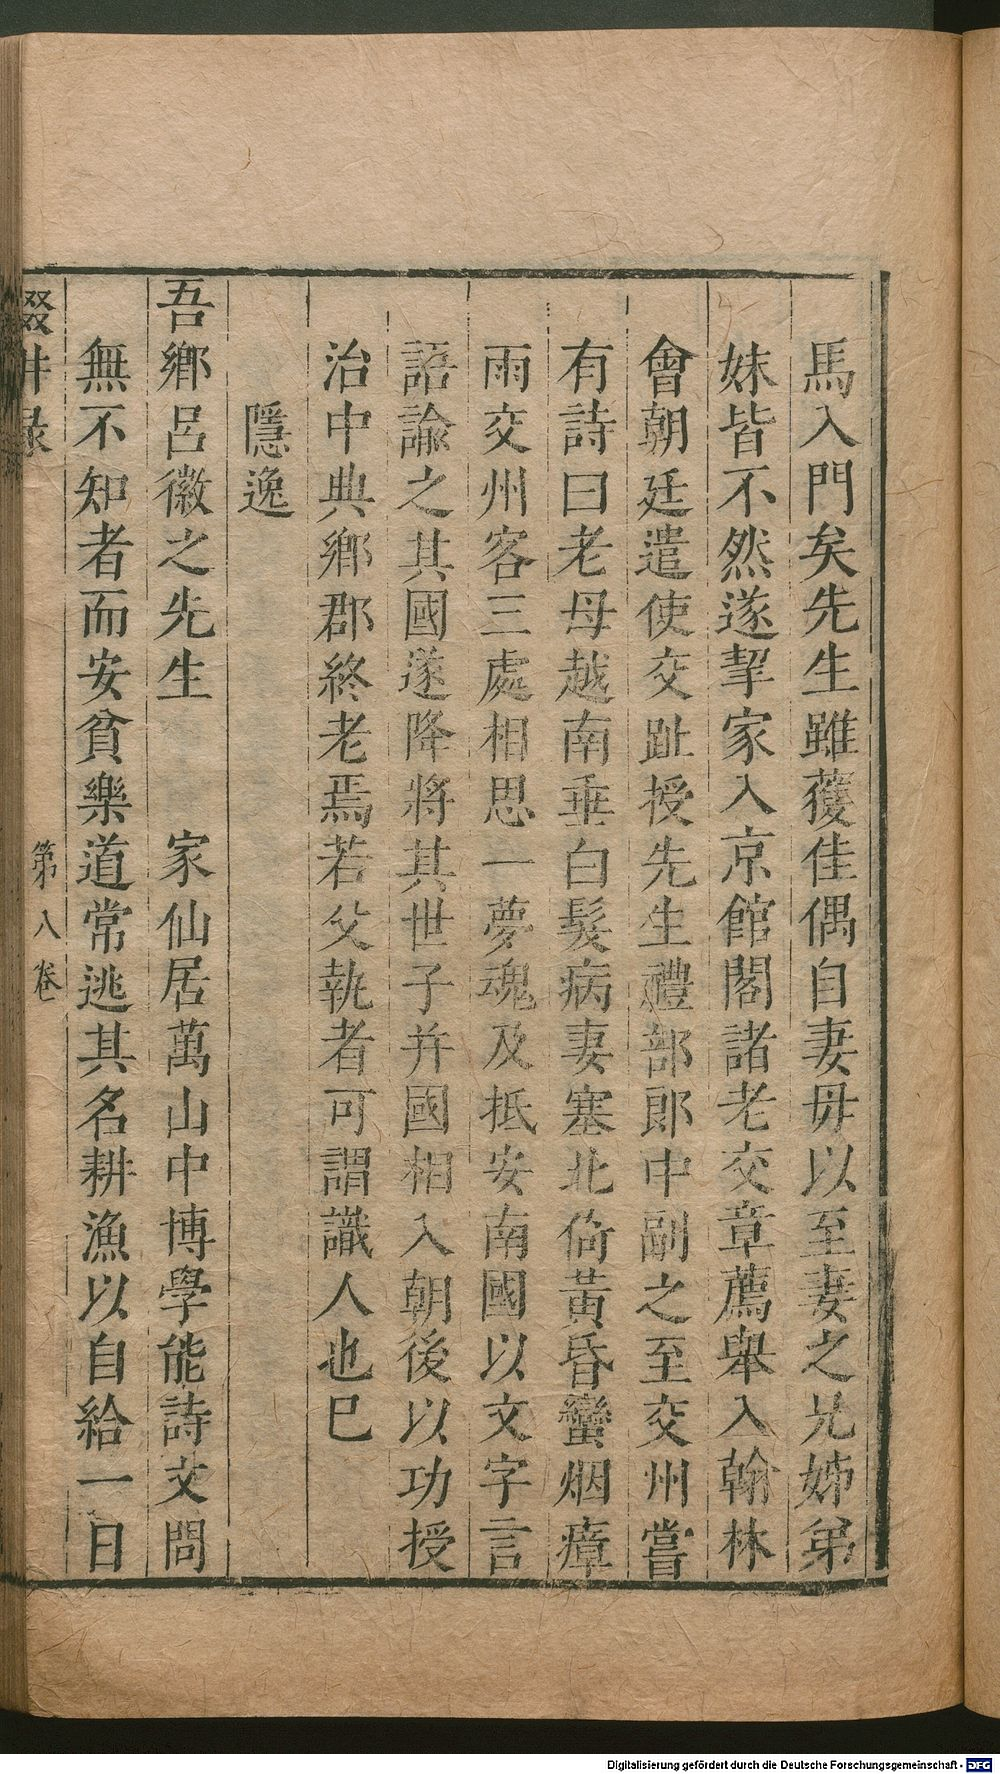 馬入門矣先生雖獲佳偶自妻母以至妻之兄姊弟
妹皆不然遂挈家入京館閣諸老交章薦舉入翰林
會朝廷遣使交趾授先生禮部郎中副之至交州嘗
有詩曰老母越南垂白髮病妻塞北倚黃昏蠻烟瘴
雨交州客三處相思一夢魂及抵安南國以文字言
語諭之其國遂降將其世子并國相入朝後以功授
治中典鄉郡終老焉若父執者可謂識人也巳
隱逸
吾鄉呂徽之先生 家仙居萬山中博學能詩文問
無不知者而安貧樂道常逃其名耕漁以自給一日
輟畊录 第八卷
Digitalisierung gefördert durch die Deutsche Forschungsgemeinschaft - DFG